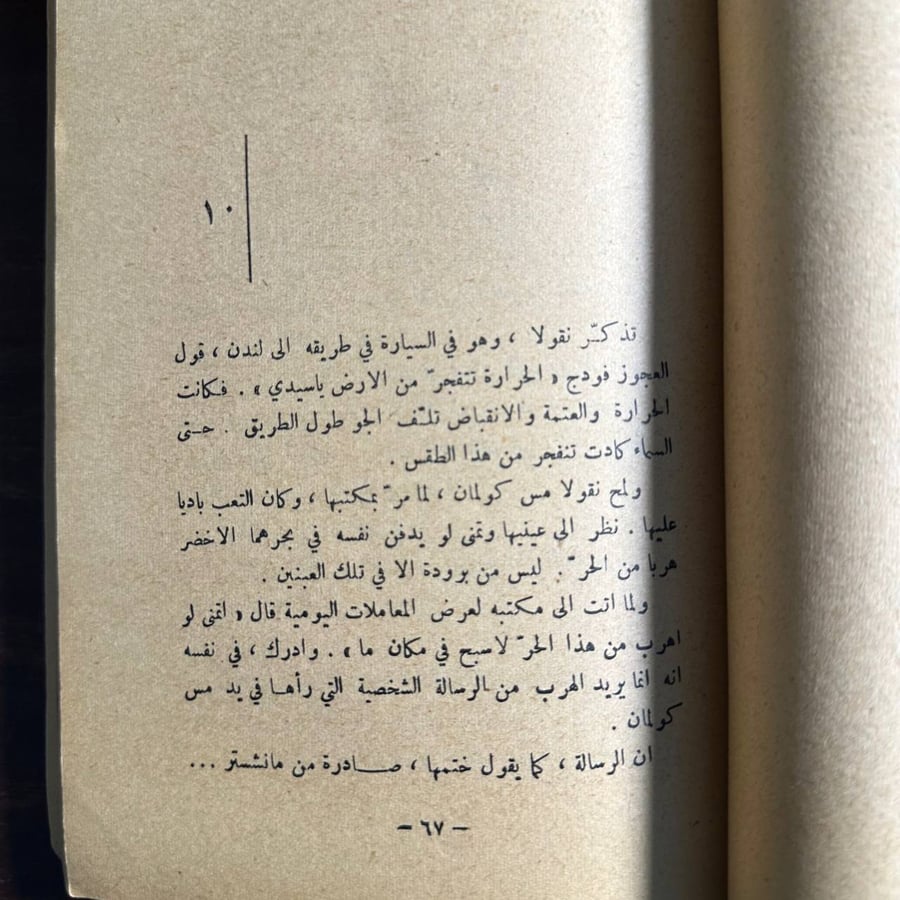 ١٠
تذكّر نقولا ، وهو في السيارة في طريقه الى لندن ، قول
العجوز فودج « الحرارة تتفجرّ من الارض ياسيدي » . فكانت
الحرارة والعتمة والانقباض تلـّف الجو طول الطريق . حتى
السماء كادت تنفجر من هذا الطقس .
ولمح نقولا مس كولمان ، لما مرّ بمكتبها ، وكان التعب باديا
عليها . نظر الى عينيها وتمنى لو يدفن نفسه في بحرهما الاخضر
هربا من الحرّ . ليس من برودة الا في تلك العينين .
ولما اتت الى مكتبه لعرض المعاملات اليومية قال « اتمنى لو
اهرب من هذا الحرّ لاسبح في مكان ما » . وادرك ، في نفسه
انه انما يريد الهرب من الرسالة الشخصية التي رأها في يد مس
كولمان .
ان الرسالة ، كما يقول ختمها ، صادرة من مانشستر ...
– ٦٧ –